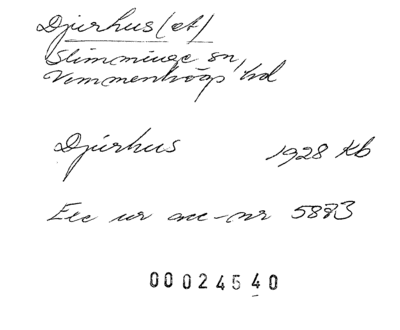 Djurhus (et)
Slimminge sn,
Vemmenhögs hd
Djurhus 1928 Kb
Exc ur acc-nr 5883
00024540